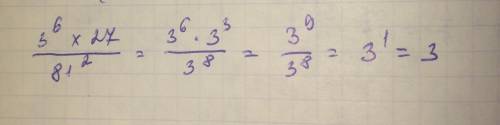 3^6 × 27 / 81^2 = 3^6 · 3^3 / 3^8 = 3^9 / 3^8 = 3^1 = 3